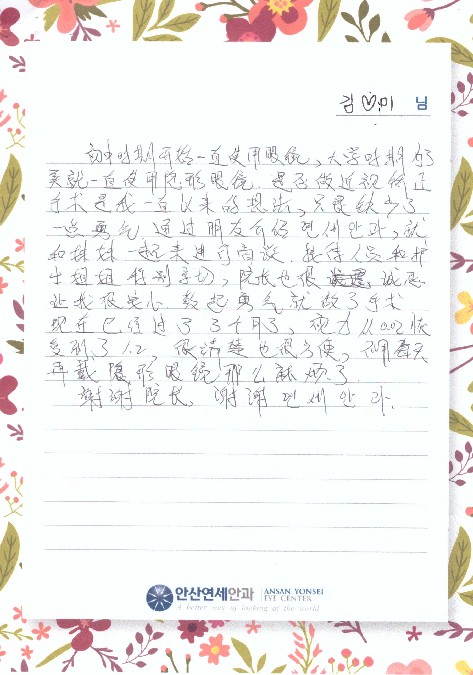 김♡미 님
初中时期开始一直使用眼镜，大学时期的
一直使用隐形眼镜. 是否做近视矫正
手术是我一直以来的想法，只是缺少了
一点勇气. 通过朋友介绍 연세안과，就
和妹妹一起来进行商谈. 接待人员和护
士姐姐 特别亲切，院长也很 诚恳
让我很安心 鼓起勇气就做了手术
现在已经过了3个月了，视力从0.02恢
复到了1.2，很清楚也很方便，不用每天
再戴隐形眼镜那么麻烦了.
谢谢院长，谢谢 연세안과.
안산연세안과 ANSAN YONSEI
EYE CENTER
A better way of looking at the world